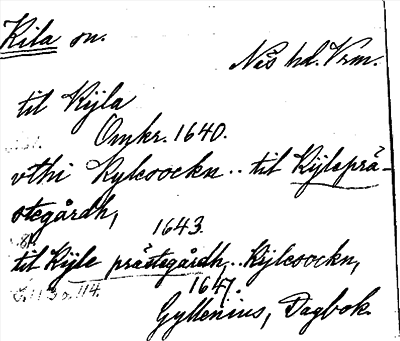 Kila sn.
Näs hd. Vrm.
til Kijla
Omkr. 1640.
vthi Kylesockn .. til Kijleprä-
stegårdh,
1643.
til Kijle prästegårdh,.. Kijlesockn,
1647.
Gyllenius, Dagbok.